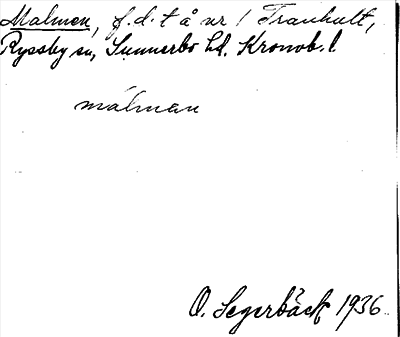 Malmen, f.d. t å nr 1 Tranhult,
Ryssby sn, Sunnerbo hd. Kronob. l
målman
O. Segerbäck 1936